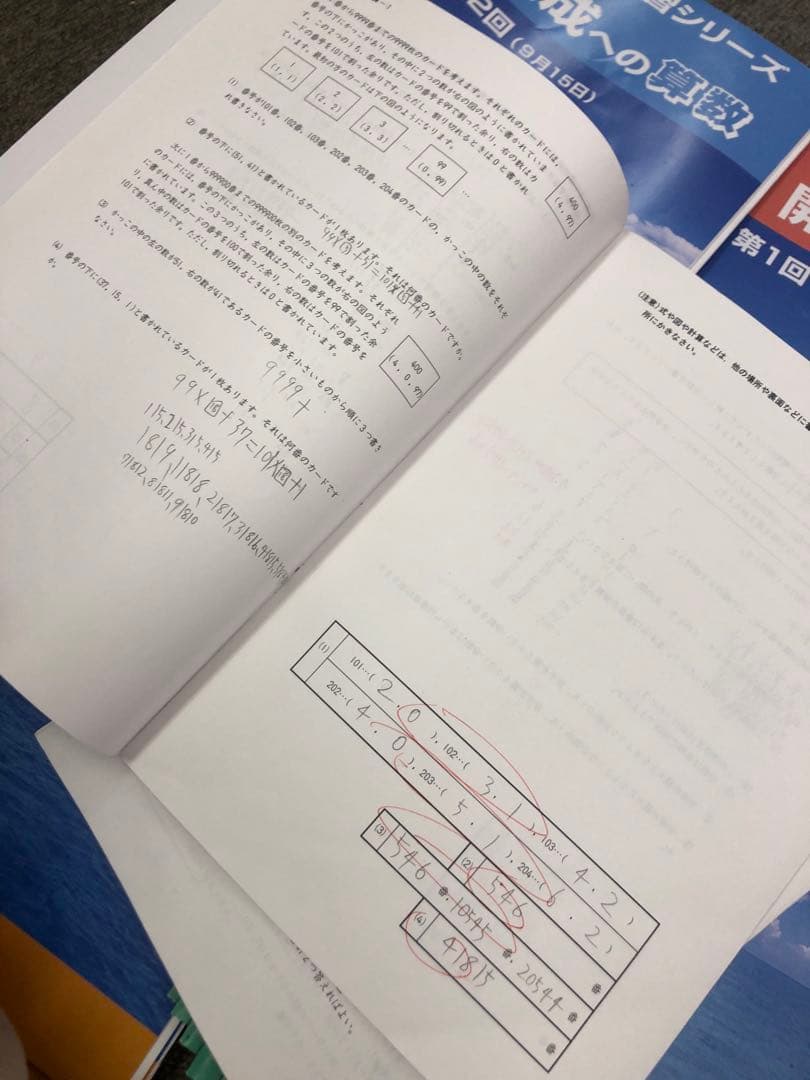 習シリーズ
成への算数
2回(9月15日)
開
第1回
番から9999番までの9999枚のカードを考えます。それぞれのカードには、
番号の下にかっこがあり、その中に2つの数が右の図のように書かれていま
す。この2つのうち、左の数はカードの番号を99で割った余り、右の数はカ
ードの番号を101で割った余りです。ただし、割り切れるときは0と書かれ
ています。最初の方のカードは下の図のようになります。
400
(4, 97)
1
(1, 1)
2
(2, 2)
3
(3, 3)
…
99
(0, 99)
…
(1) 番号が101番、102番、103番、202番、203番、204番のカードの、かっこの中の数をそれぞ
れ書きなさい。
(2) 番号の下に(61, 41)と書かれているカードが1枚あります。それは何番のカードですか。
次に1番から999900番までの999900枚の別のカードを考えます。それぞれ
のカードには、番号の下にかっこがあり、その中に3つの数が右の図のよう
に書かれています。この3つのうち、左の数はカードの番号を99で割った余
り、真ん中の数はカードの番号を100で割った余り、右の数はカードの番号を
101で割った余りです。ただし、割り切れるときは0と書かれています。
400
(4, 0, 97)
(3) かっこの中の左の数が61、右の数が41であるカードの番号を小さいものから順に3つ書き
なさい。
9999+
(4) 番号の下に(37, 15, 1)と書かれているカードが1枚あります。それは何番のカードです
か。
115,215,315,415
1819,11818,21817,31816,41815
71812,81811,91810
(注意)式や図や計算などは、他の場所や裏面などに
所にかきなさい。
(1)
101…( 2 , 0 ), 102…( 3 , 1 ), 103…( 4 , 2 )
202…( 4 , 0 ), 203…( 5 , 1 ), 204…( 6 , 2 )
(2) 1546 番
(3) 1546 番, 10545 番, 20544 番
(4) 41815 番